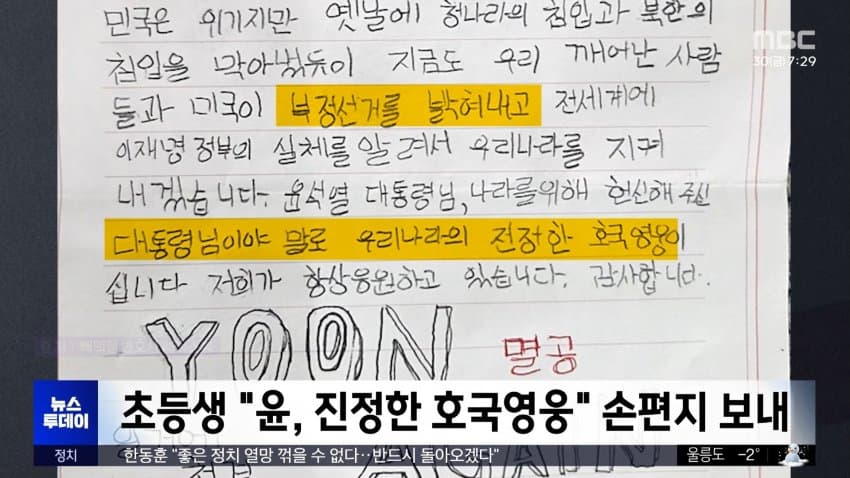 민국은 위기지만 옛날에 청나라의 침입과 북한의
mbc
30(금) 7:29
침입을 막아냈듯이 지금도 우리 깨어난 사람
들과 미국이 부정선거를 밝혀내고 전세계에
이재명정부의 실체를 알려서 우리나라를 지켜
내겠습니다. 윤석열 대통령님, 나라를위해 헌신해 주신
대통령님이야 말로 우리나라의 진정한 호국영웅이
십니다 저희가 항상응원하고 있습니다. 감사합니다.
YOON
멸공
뉴스
투데이
초등생 "윤, 진정한 호국영웅" 손편지 보내
AGAIN
정치
한동훈 "좋은 정치 열망 꺾을 수 없다‥반드시 돌아오겠다"
울릉도 -2°